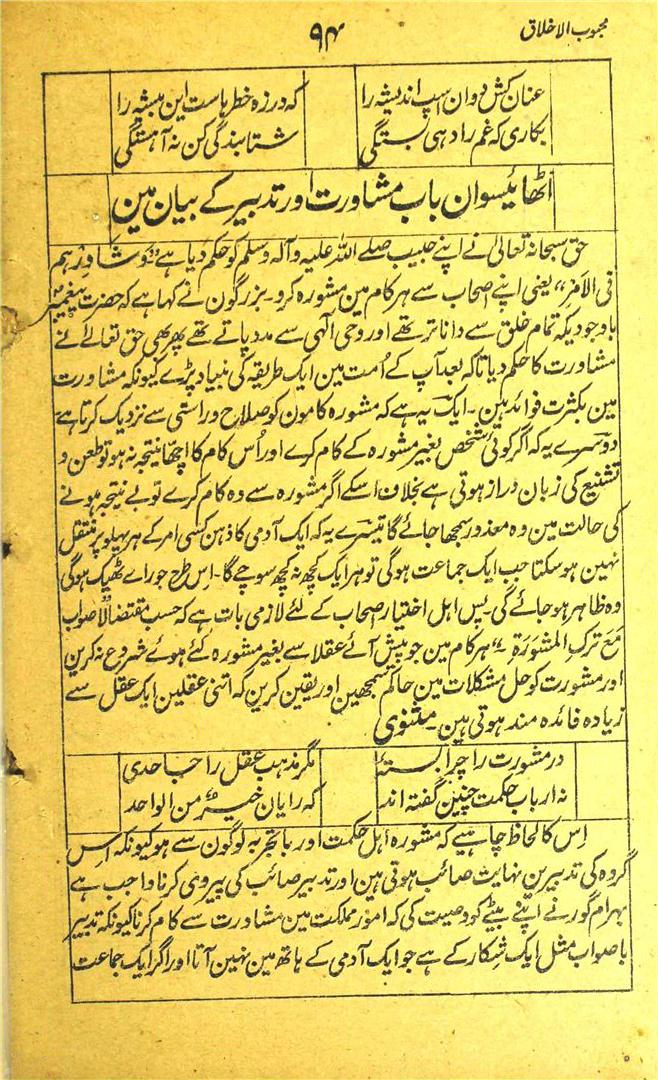 محبوب الاخلاق
۹۴
عنان کش دوان اسپ اندیشہ را
کہ در رہ خطرہاست این بیشہ را
بکاری کہ غم را دہی بستگی
شتابندگی کن نہ آہستگی
اٹھائیسوان باب مشاورت اور تدبیر کے بیان مین
حق سبحانہ تعالیٰ نے اپنے حبیب صلے اللہ علیہ و آلہ وسلم کو حکم دیا ہے وَشَاوِرْہُم
فی الاَمْرِ“ یعنی اپنے اصحاب سے ہر کام مین مشورہ کرو۔ بزرگون نے کہا ہے کہ حضرت پیغمبرؐ
باوجودیکہ تمام خلق سے دانا تر تھے اور وحی الٰہی سے مدد پاتے تھے پھر بھی حق تعالےٰ نے
مشاورت کا حکم دیا تاکہ بعد آپ کے اُمت مین ایک طریقہ کی بنیاد پڑے کیونکہ مشاورت
مین بکثرت فوائد ہین۔ ایک یہ ہے کہ مشورہ کامون کو صلاح و راستی سے نزدیک کرتا ہے
دوسرے یہ کہ اگر کوئی شخص بغیر مشورہ کے کام کرے اور اُس کام کا اچھا نتیجہ نہ ہو تو طعن و
تشنیع کی زبان دراز ہوتی ہے بخلاف اسکے اگر مشورہ سے وہ کام کرے تو بے نتیجہ ہونے
کی حالت مین وہ معذور سمجھا جائے گا تیسرے یہ کہ ایک آدمی کا ذہن کسی امر کے ہر پہلو پر منتقل
نہین ہو سکتا جب ایک جماعت ہوگی تو ہر ایک کچھ نہ کچھ سوچے گا۔ اس طرح جو راے ٹھیک ہوگی
وہ ظاہر ہو جائے گی۔ پس اہل اختیار اصحاب کے لئے لازمی بات ہے کہ حسب مقتضاء لَا صواب
مَعَ تَرکِ المَشوَرَۃِ۔“ ہر کام مین جو پیش آئے عقلا سے بغیر مشورہ کئے ہوئے شروع نہ کرین
اور مشورت کو حل مشکلات مین حاکم سمجھین اور یقین کرین کہ اتنی عقلین ایک عقل سے
زیادہ فائدہ مند ہوتی ہین۔ مثنوی
در مشورت را چرا بستۂ
مگر مذہب عقل را جاحدی
نہ ارباب حکمت چنین گفتہ اند
کہ رایان خیرٌ من الواحد
اِس کا لحاظ چاہیے کہ مشورہ اہل حکمت اور باتجربہ لوگون سے ہو کیونکہ اِس
گروہ کی تدبیرین نہایت صائب ہوتی ہین اور تدبیر صائب کی پیروی کرنا واجب ہے
بہرام گور نے اپنے بیٹے کو وصیت کی کہ امور مملکت مین مشاورت سے کام کرنا کیونکہ تدبیر
باصواب مثل ایک شکار کے ہے جو ایک آدمی کے ہاتھ مین نہین آتا اور اگر ایک جماعت